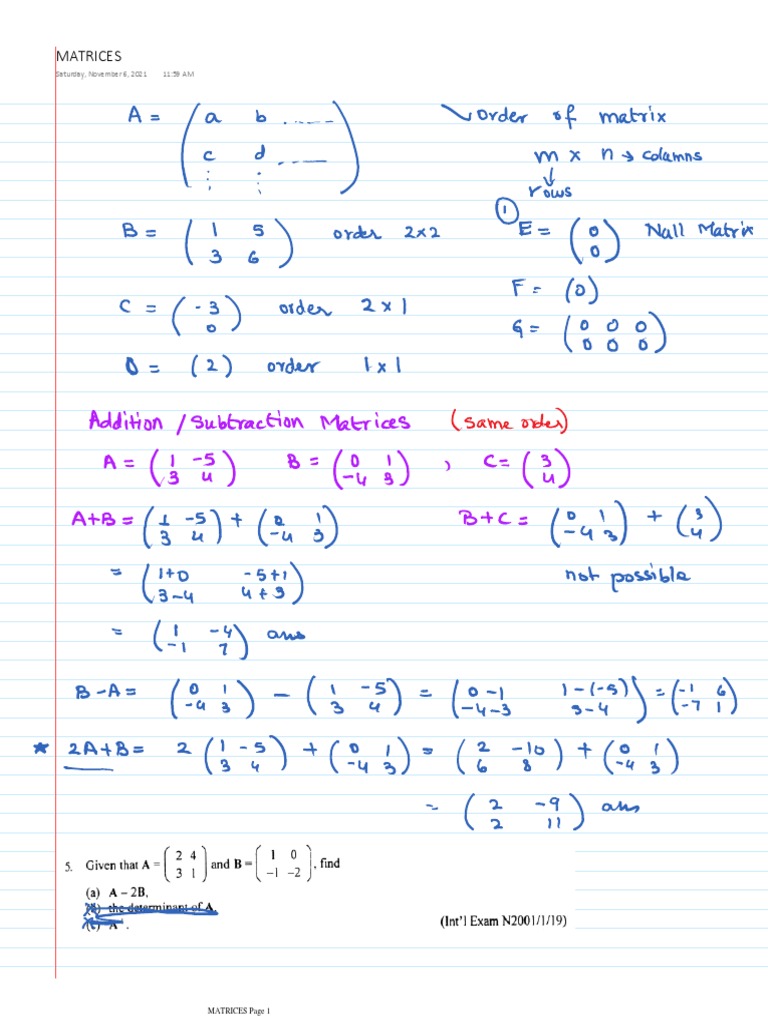 MATRICES
Saturday, November 6, 2021 11:59 AM
A = ( a b ......
c d ......
⋮ ⋮ )
order of matrix
m × n → columns
↓
rows
B = ( 1 5
3 6 ) order 2×2
① E = ( 0
0 ) Null Matrix
C = ( -3
0 ) order 2 × 1
F = (0)
G = ( 0 0 0
0 0 0 )
D = (2) order 1×1
Addition / Subtraction Matrices (same order)
A = ( 1 -5
3 4 ) B = ( 0 1
-4 3 ) , C = ( 3
4 )
A+B = ( 1 -5
3 4 ) + ( 0 1
-4 3 )
= ( 1+0 -5+1
3-4 4+3 )
= ( 1 -4
-1 7 ) ans
B+C = ( 0 1
-4 3 ) + ( 3
4 )
not possible
B-A = ( 0 1
-4 3 ) - ( 1 -5
3 4 ) = ( 0-1 1-(-5)
-4-3 3-4 ) = ( -1 6
-7 1 )
* 2A+B = 2 ( 1 -5
3 4 ) + ( 0 1
-4 3 ) = ( 2 -10
6 8 ) + ( 0 1
-4 3 )
= ( 2 -9
2 11 ) ans
5. Given that A = ( 2 4
3 1 ) and B = ( 1 0
-1 -2 ), find
(a) A – 2B,
(b) the determinant of A,
(c) A⁻¹.
(Int'l Exam N2001/1/19)
MATRICES Page 1